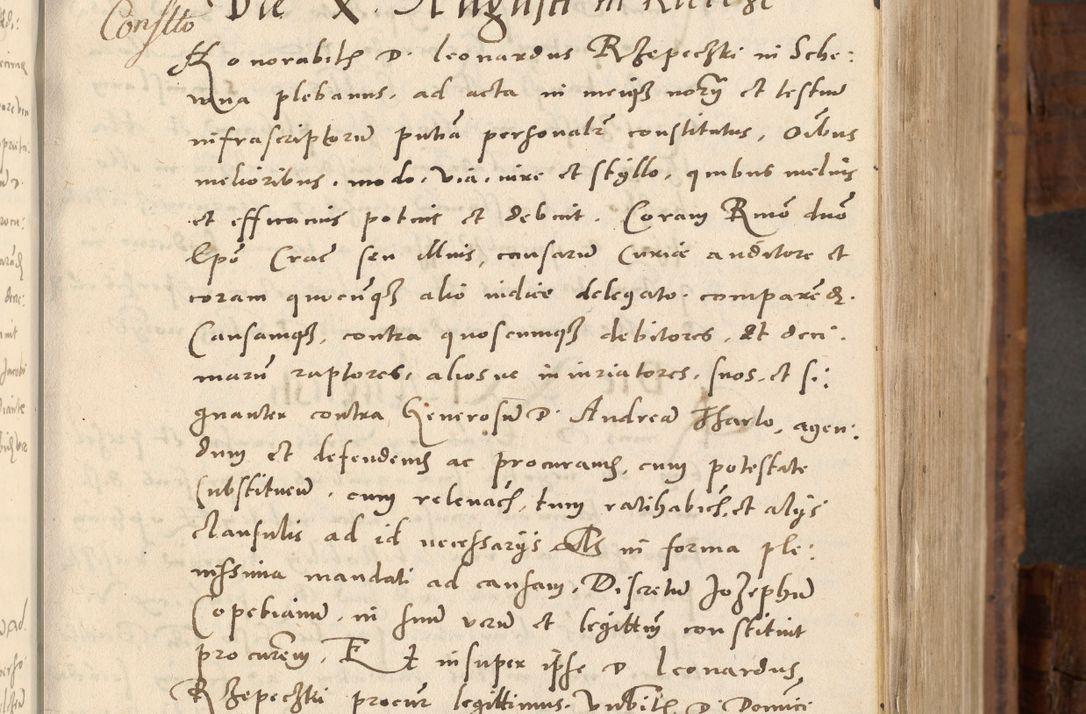 Constto
Die X. Augusti in
Honorabilis D. Leonardus Rzepechki in Sche:
mna plebanus, ad acta in meiqz norū et testiū
infrascriptorū putiā personalr constitutus, oībus
melioribus, modo, via, iure et styllo, quibus melius
et efficacius potuit et debuit. Coram Rmō dnō
Epō Crac seu illius, causarū Curiae auditore et
coram quocūqz alio iudice delegato comparēd.
Causamqz, contra quoscumqz debitores, et deci:
marū raptores, aliosve iniuriatores, suos, et si:
gnanter contra Generosū D. Andreā Tharlo, agen:
dum et defendend ac procurand, cum potestate
substituen, cum relevach, tum ratihabich, et alijs
clausulis ad id necessarijs in forma ple:
nissima mandati ad causam, Discretū Jozephū
Copebianū, in suū verū et legittm̄ constituit
procurem̄, Et insuper ipse D. Leonardus
Rzepechki procūr legittimus, Vnbilis D. Domici